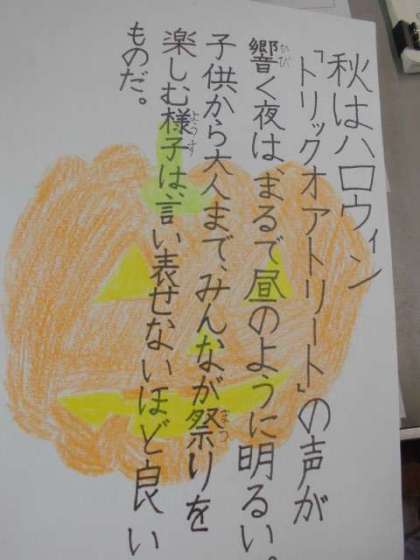 秋はハロウィン
「トリックオアトリート」の声が
響く夜は、まるで昼のように明るい。
子供から大人まで、みんなが祭りを
楽しむ様子は、言い表せないほど良い
ものだ。